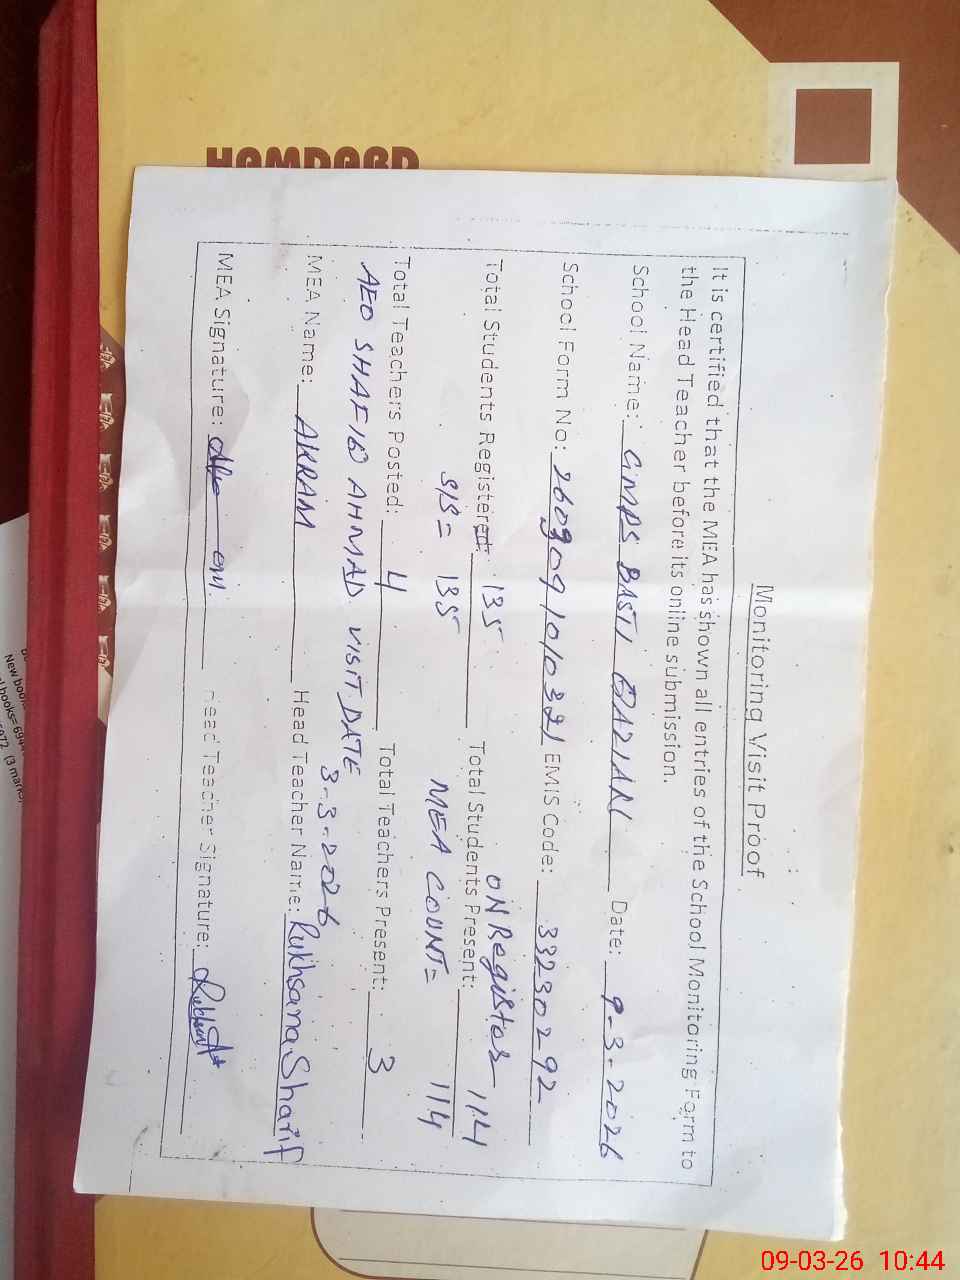 HAMDARD
Monitoring Visit Proof
It is certified that the MEA has shown all entries of the School Monitoring Form to
the Head Teacher before its online submission.
School Name: GMPS BASTI Date: 9-3-2026
School Form No: EMIS Code: 33230292
ON Register
Total Students Registered: 135 Total Students Present: 114
S/S = 135 MEA COUNT= 114
Total Teachers Posted: 4 Total Teachers Present: 3
AEO SHAFIQ AHMAD VISIT DATE 3-3-2026
MEA Name: AKRAM Head Teacher Name: Rukhsana Sharif
MEA Signature: Head Teacher Signature:
New book
(3 mark
09-03-26 10:44